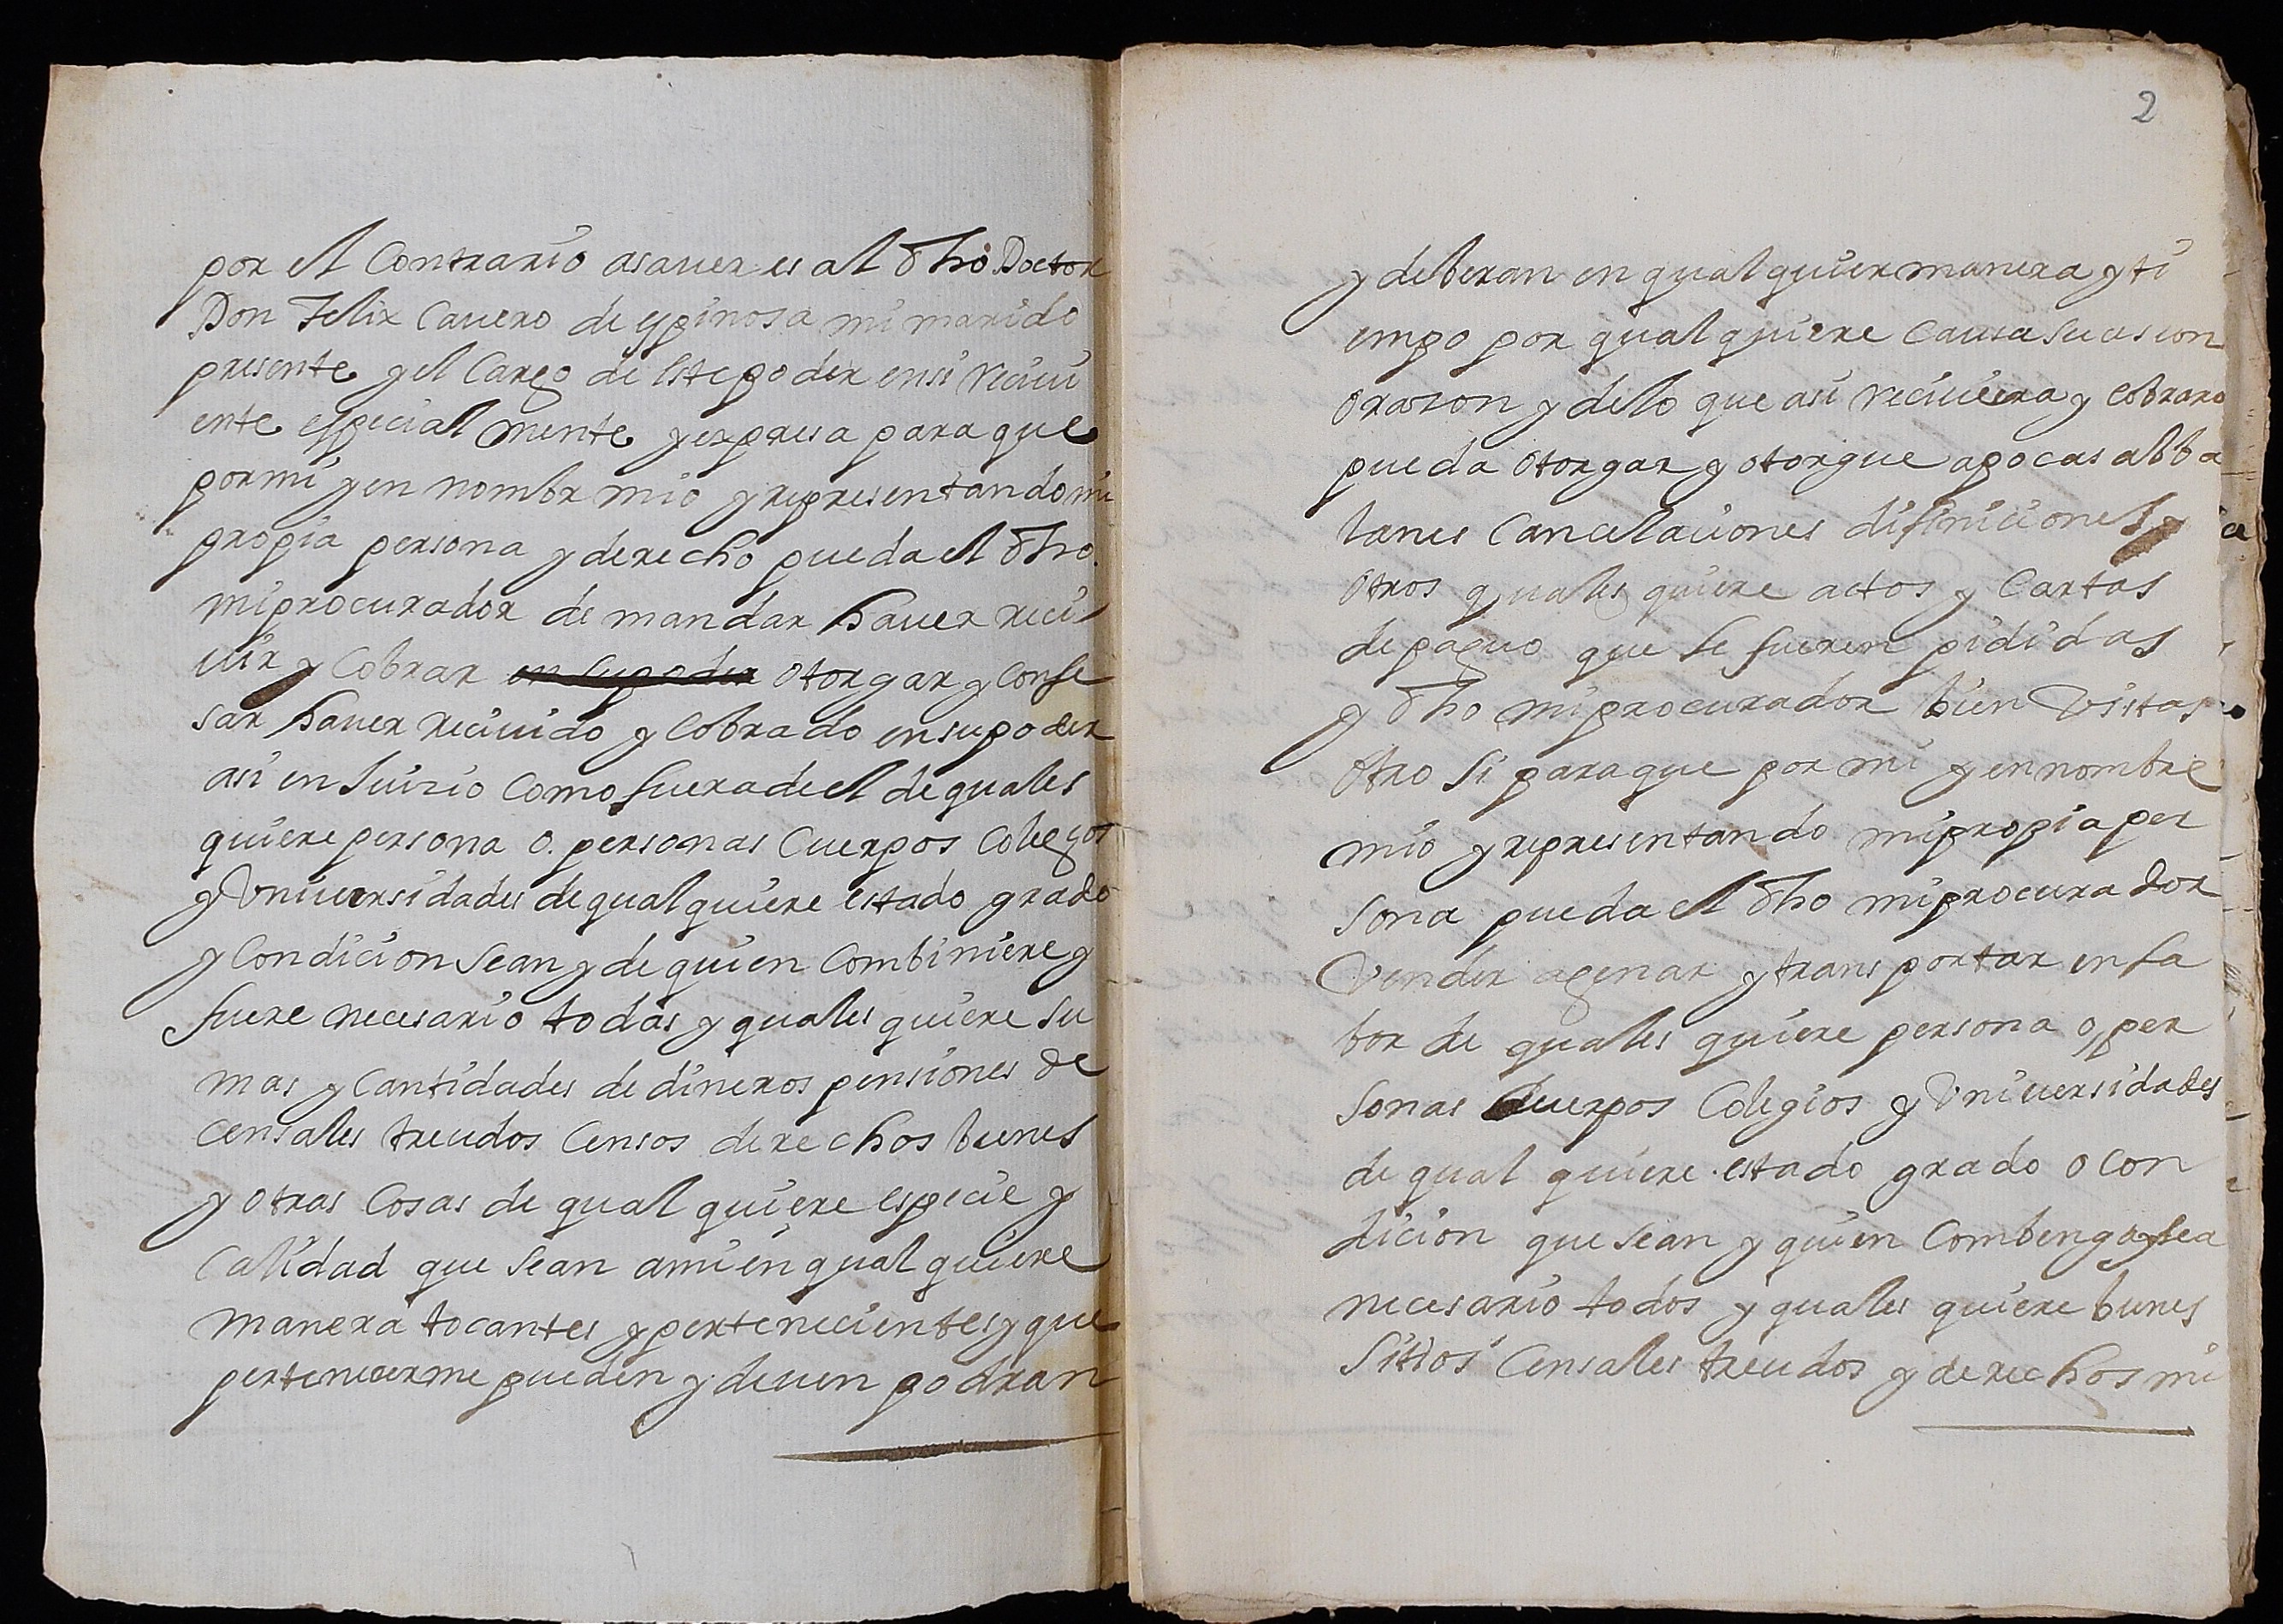 por el Contrario asauer es al dho Doctor
Don Felix Cauero de espinosa mi marido
presente y el Cargo de este poder en si reciui
ente especial mente y expresa para que
por mi y en nombr mio y representando mi
propia persona y derecho pueda el dho
mi procurador de mandar hauer reci
uir y Cobrar en su poder otorgar y Confe
sar hauer reciuido y Cobrado en su poder
asi en Juizio Como fuera de el de quales
quiere persona o personas Cuerpos Colegios
y Vniuersidades de qual quiere estado grado
y Condicion Sean y de quien Combiniere y
fuere necesario todas y quales quiere su
mas y Cantidades de dineros pensiones de
Censales treudos Censos derechos bienes
y otras Cosas de qual quiere especie y
Calidad que Sean a mi en qual quiere
manera tocantes y pertenecientes y que
pertenecerme pueden y deuen podran
2
y deberan en qual quier manera y ti
empo por qual quiere Causa su asion
o rason y de lo que asi reciuiera y Cobrara
pueda otorgar y otorgue apocas alba
lanes Cancelaciones difiniciones y
otros quales quiere actos y Cartas
de paguo que le fueren pididas
y dho mi procurador bien Vistas
Otro Si para que por mi y en nombre
mio y representando mi propia per
sona pueda el dho mi procurador
Vender agenar y transportar en fa
bor de quales quiere persona o per
sonas Cuerpos Colegios y Vniuersidades
de qual quiere estado grado o Con
dicion que Sean y quien Combenga y sea
necesario todos y quales quiere bienes
Sitios Censales treudos y derechos mi